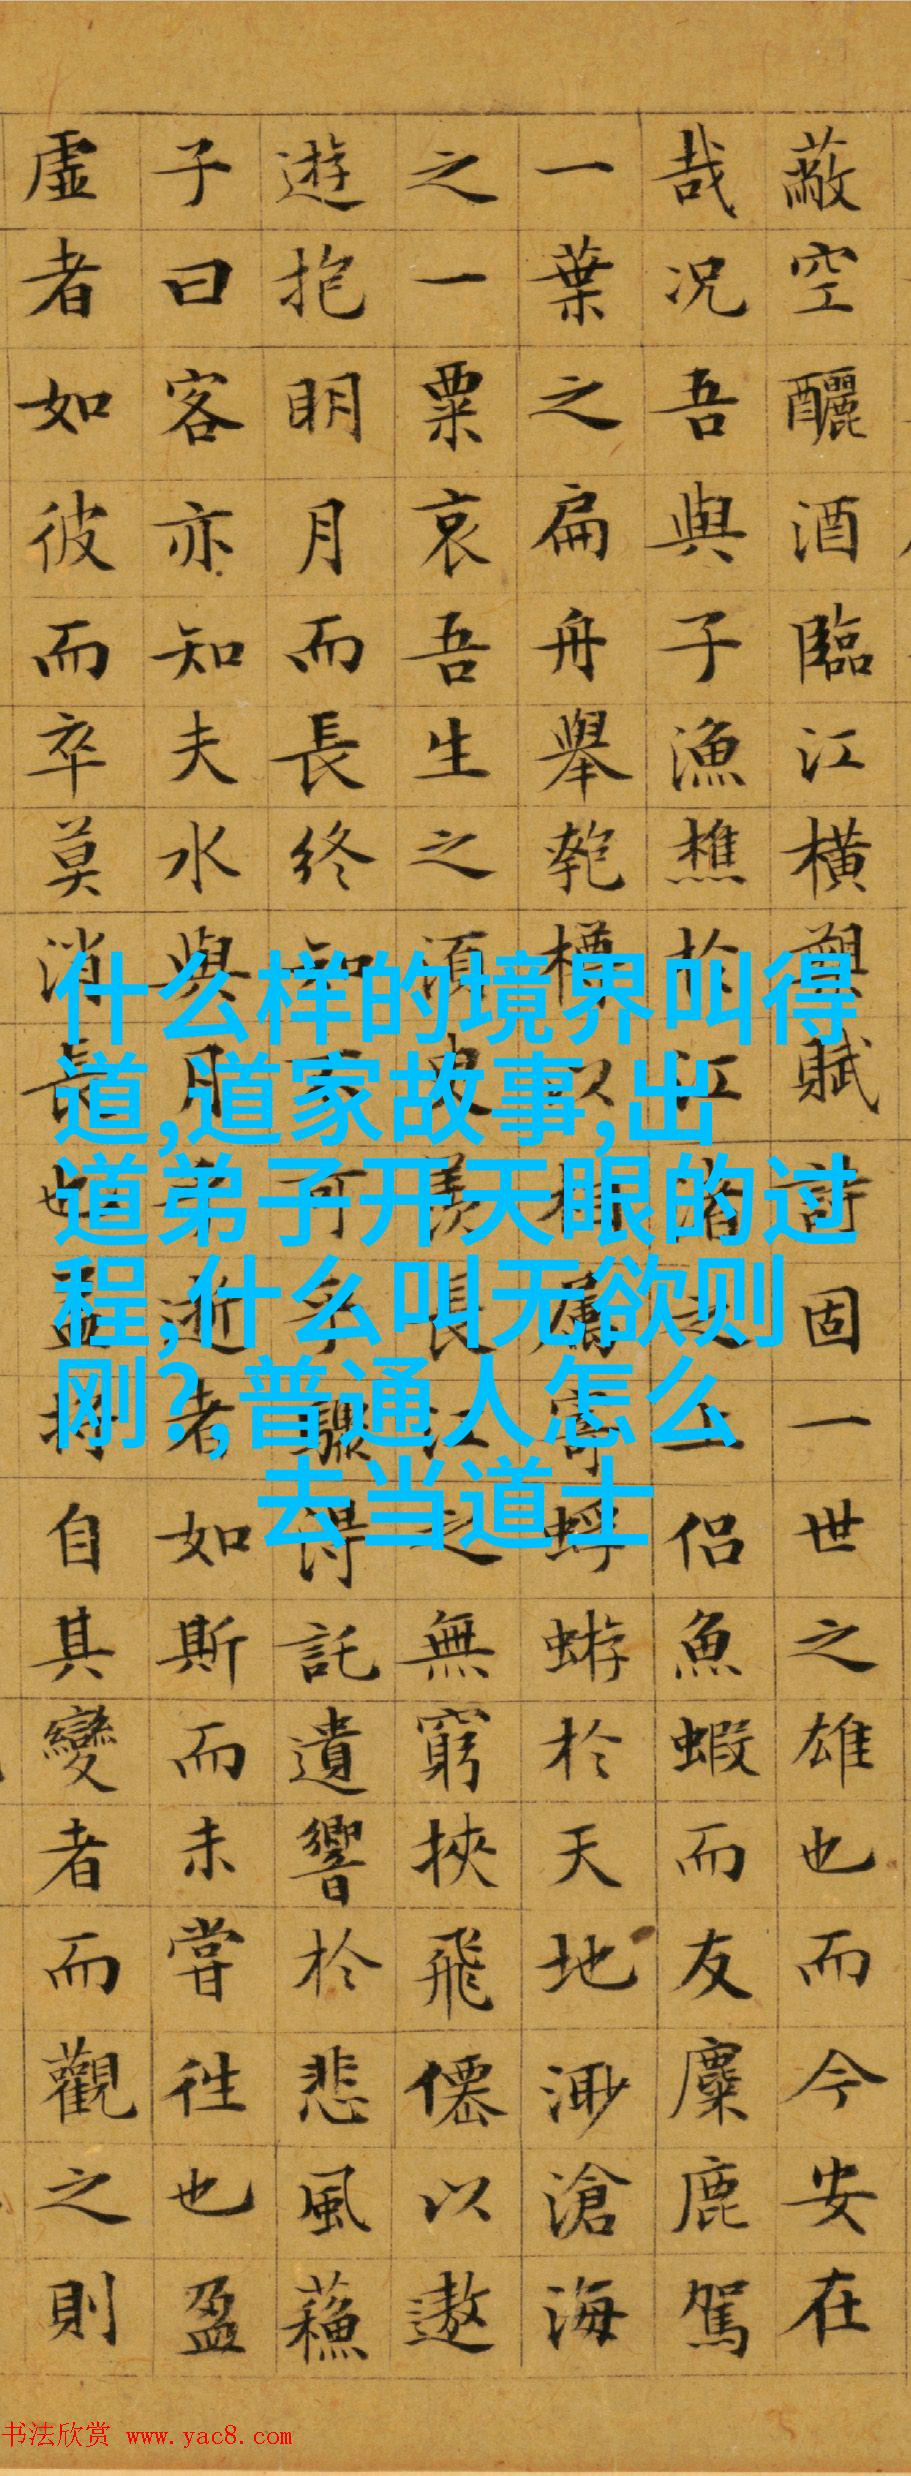 蔽空釃酒臨江橫槊賦詩固一世之雄也而今安在
哉况吾與子漁樵於江渚之上侶魚蝦而友麋鹿駕
一葉之扁舟舉匏樽以相屬寄蜉蝣於天地渺滄海
之一粟哀吾生之須臾羨長江之無窮挾飛僊以遨
遊抱明月而長終知不可乎驟得託遺響於悲風蘇
子曰客亦知夫水與月乎逝者如斯而未嘗往也盈
虛者如彼而卒莫消長也盖将自其變者而觀之則
什么样的境界叫得
道,道家故事,出
道弟子开天眼的过
程,什么叫无欲则
刚?,普通人怎么
去当道士
书法欣赏 www.yac8.com